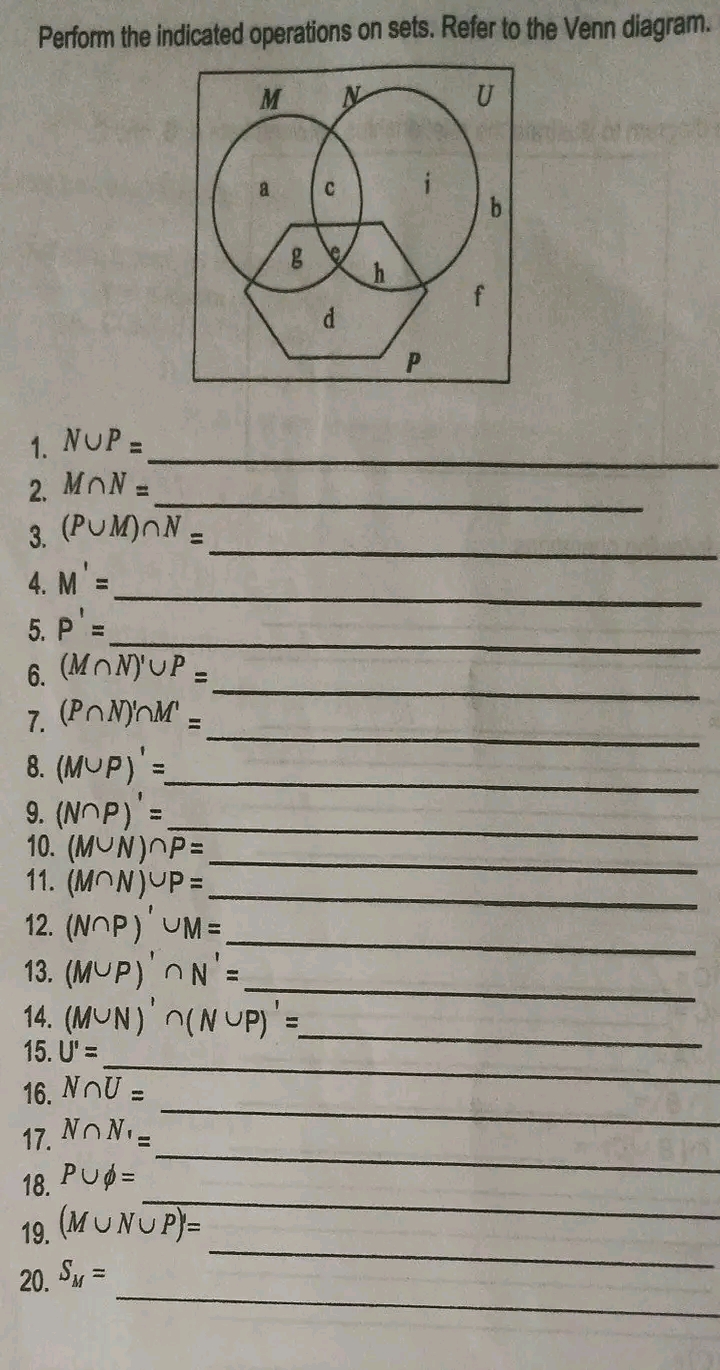 Perform the indicated operations on sets. Refer to the Venn diagram.
M N U
a c i b
g e h
d f
P
1. N∪P =
2. M∩N =
3. (P∪M)∩N =
4. M' =
5. P' =
6. (M∩N)'∪P =
7. (P∩N)'∩M' =
8. (M∪P)' =
9. (N∩P)' =
10. (M∪N)∩P=
11. (M∩N)∪P=
12. (N∩P)' ∪M=
13. (M∪P)' ∩ N' =
14. (M∪N)' ∩( N ∪P)' =
15. U' =
16. N∩U =
17. N∩N' =
18. P∪ϕ=
19. (M∪N∪P)'=
20. S_M =